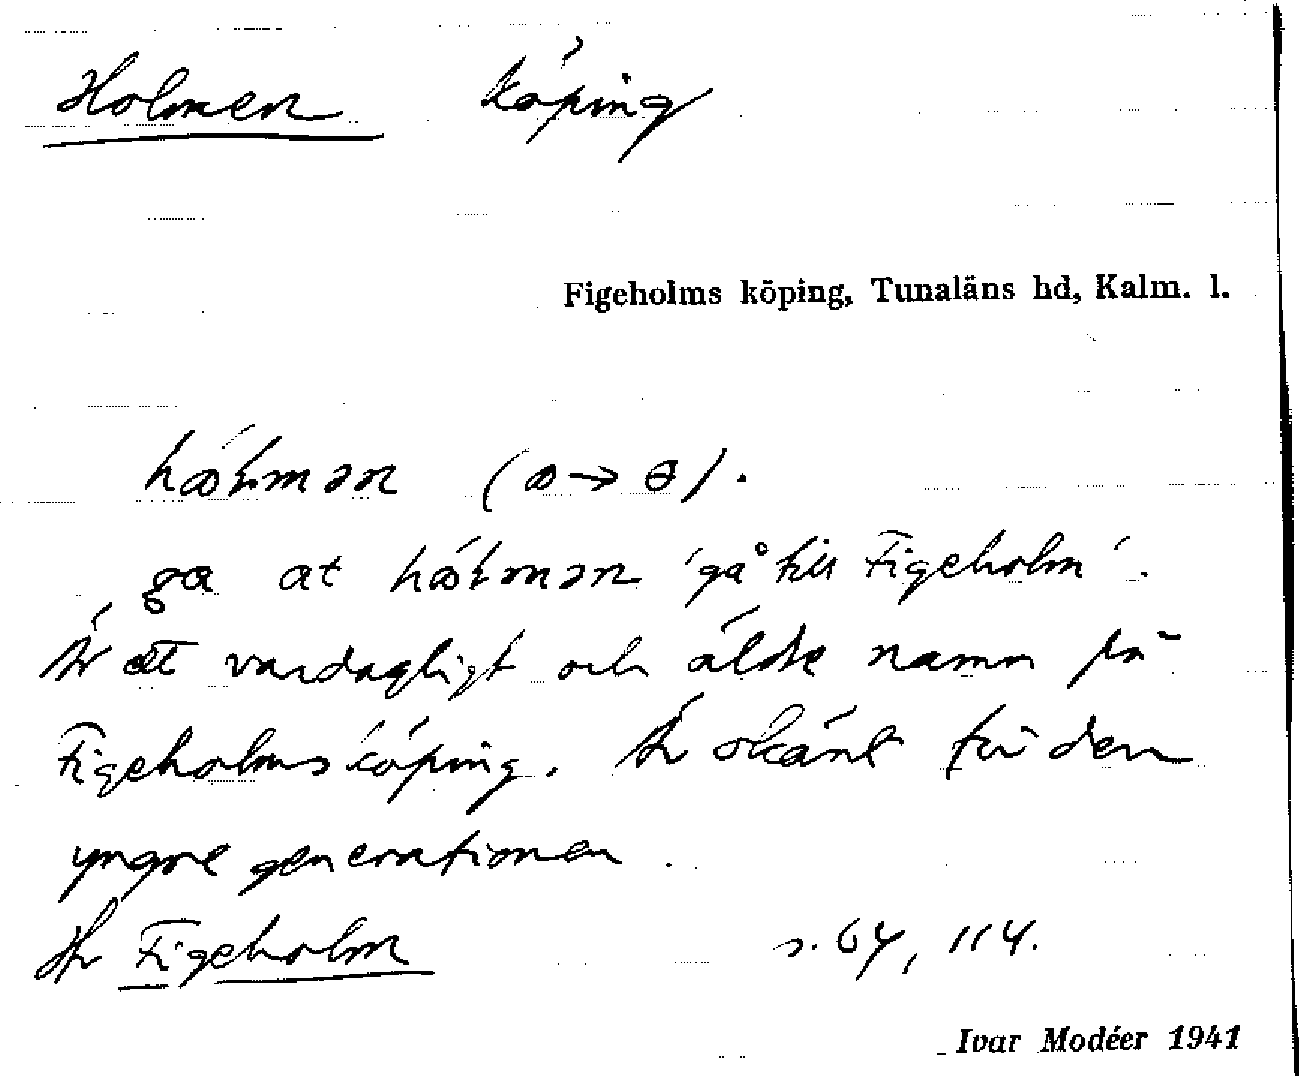 Holmen köping
Figeholms köping, Tunaläns hd, Kalm. l.
(ꝏ → ɵ).
ga at 'gå till Figeholm'.
Är ett vardagligt och äldre namn på
Figeholmsköping. Är okänt för den
yngre generationen.
Jfr Figeholm s. 64, 114.
Ivar Modéer 1941